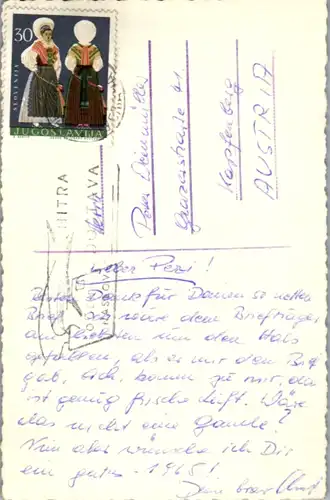 30
SLOVENIJA
JUGOSLAVIJA
HITRA
DOSTAVA
Herrn
Peter
Grazerstraße 21
Kapfenberg
AUSTRIA
Lieber Peter!
Besten Dank für Deinen so netten
Brief. Ich wäre dem Briefträger
am liebsten um den Hals
gefallen, als er mir den Brief
gab. Sich, komm zu mir, da
ist genug frische Luft. Wäre
das nicht eine Gaude?
Nun aber wünsche ich Dir
ein gutes 1965!
Dein